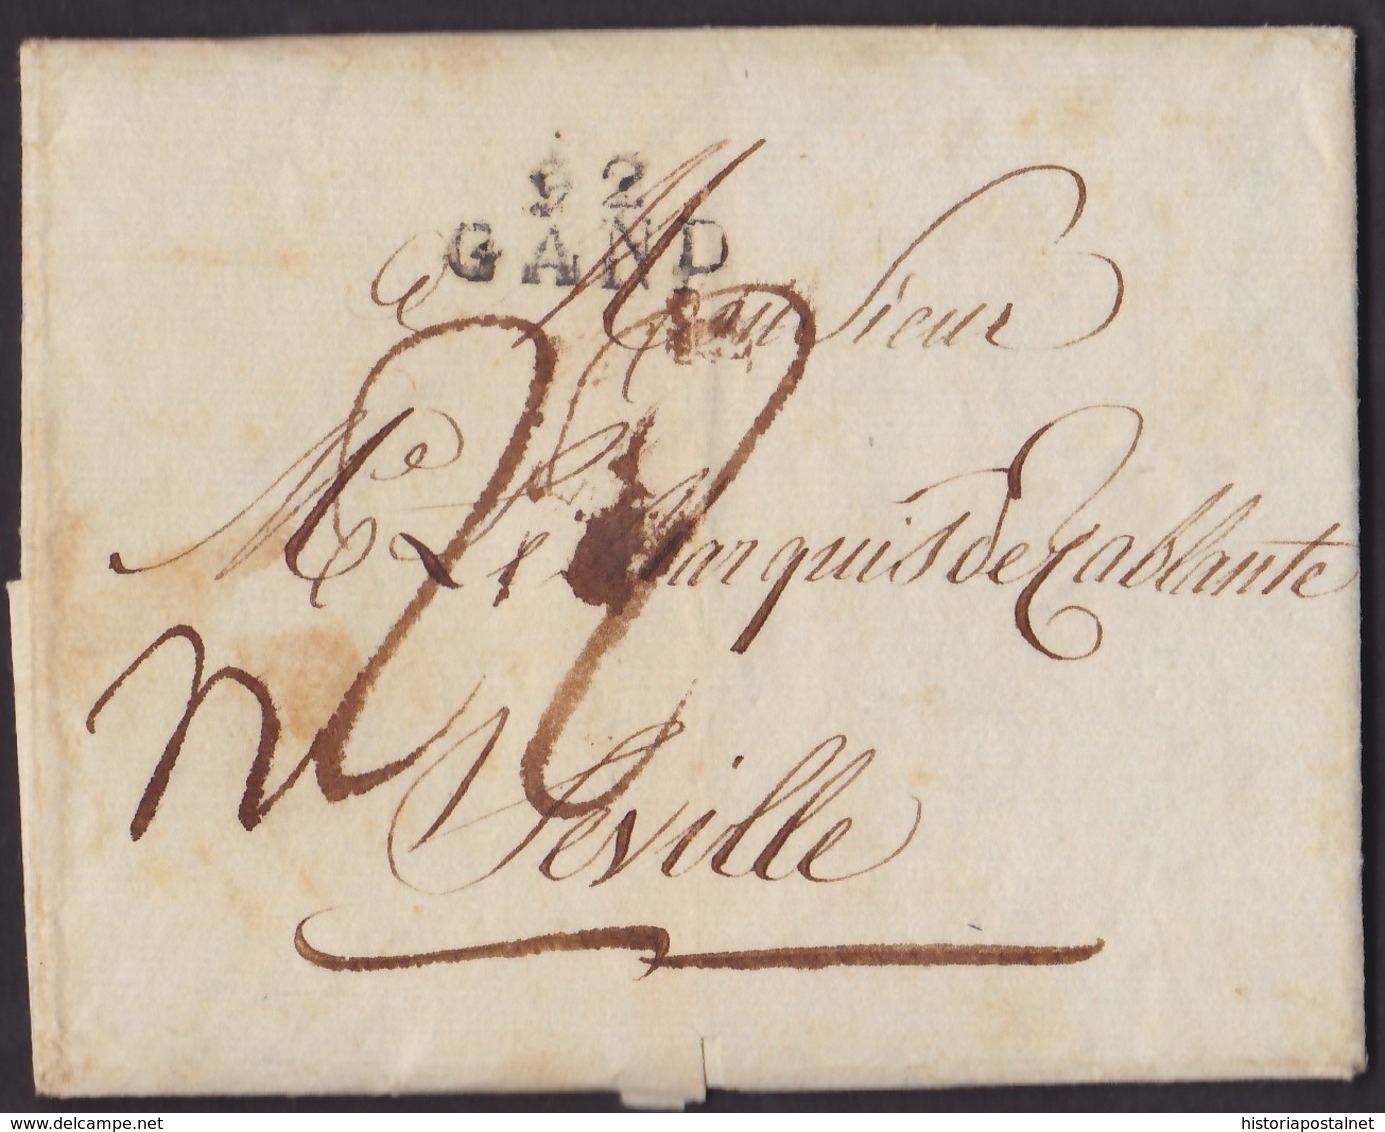 92
GAND
Monsieur
Mr Le Marquis de Tablante
Seville
historiapostalnet
www.delcampe.net